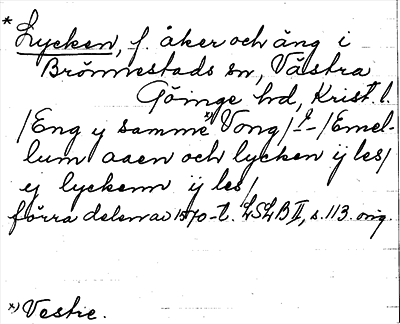 * Lycken, f. åker och äng i
Brönnestads sn, Västra
Göinge hd, Krist. l.
/Eng y samme x) Vong/ - /Emel-
lum aaen och lycken ÿ les/
ej lyckenn ÿ les/
förra delen av 1570-t. LSLB II, s. 113. orig.
x) Vestre.